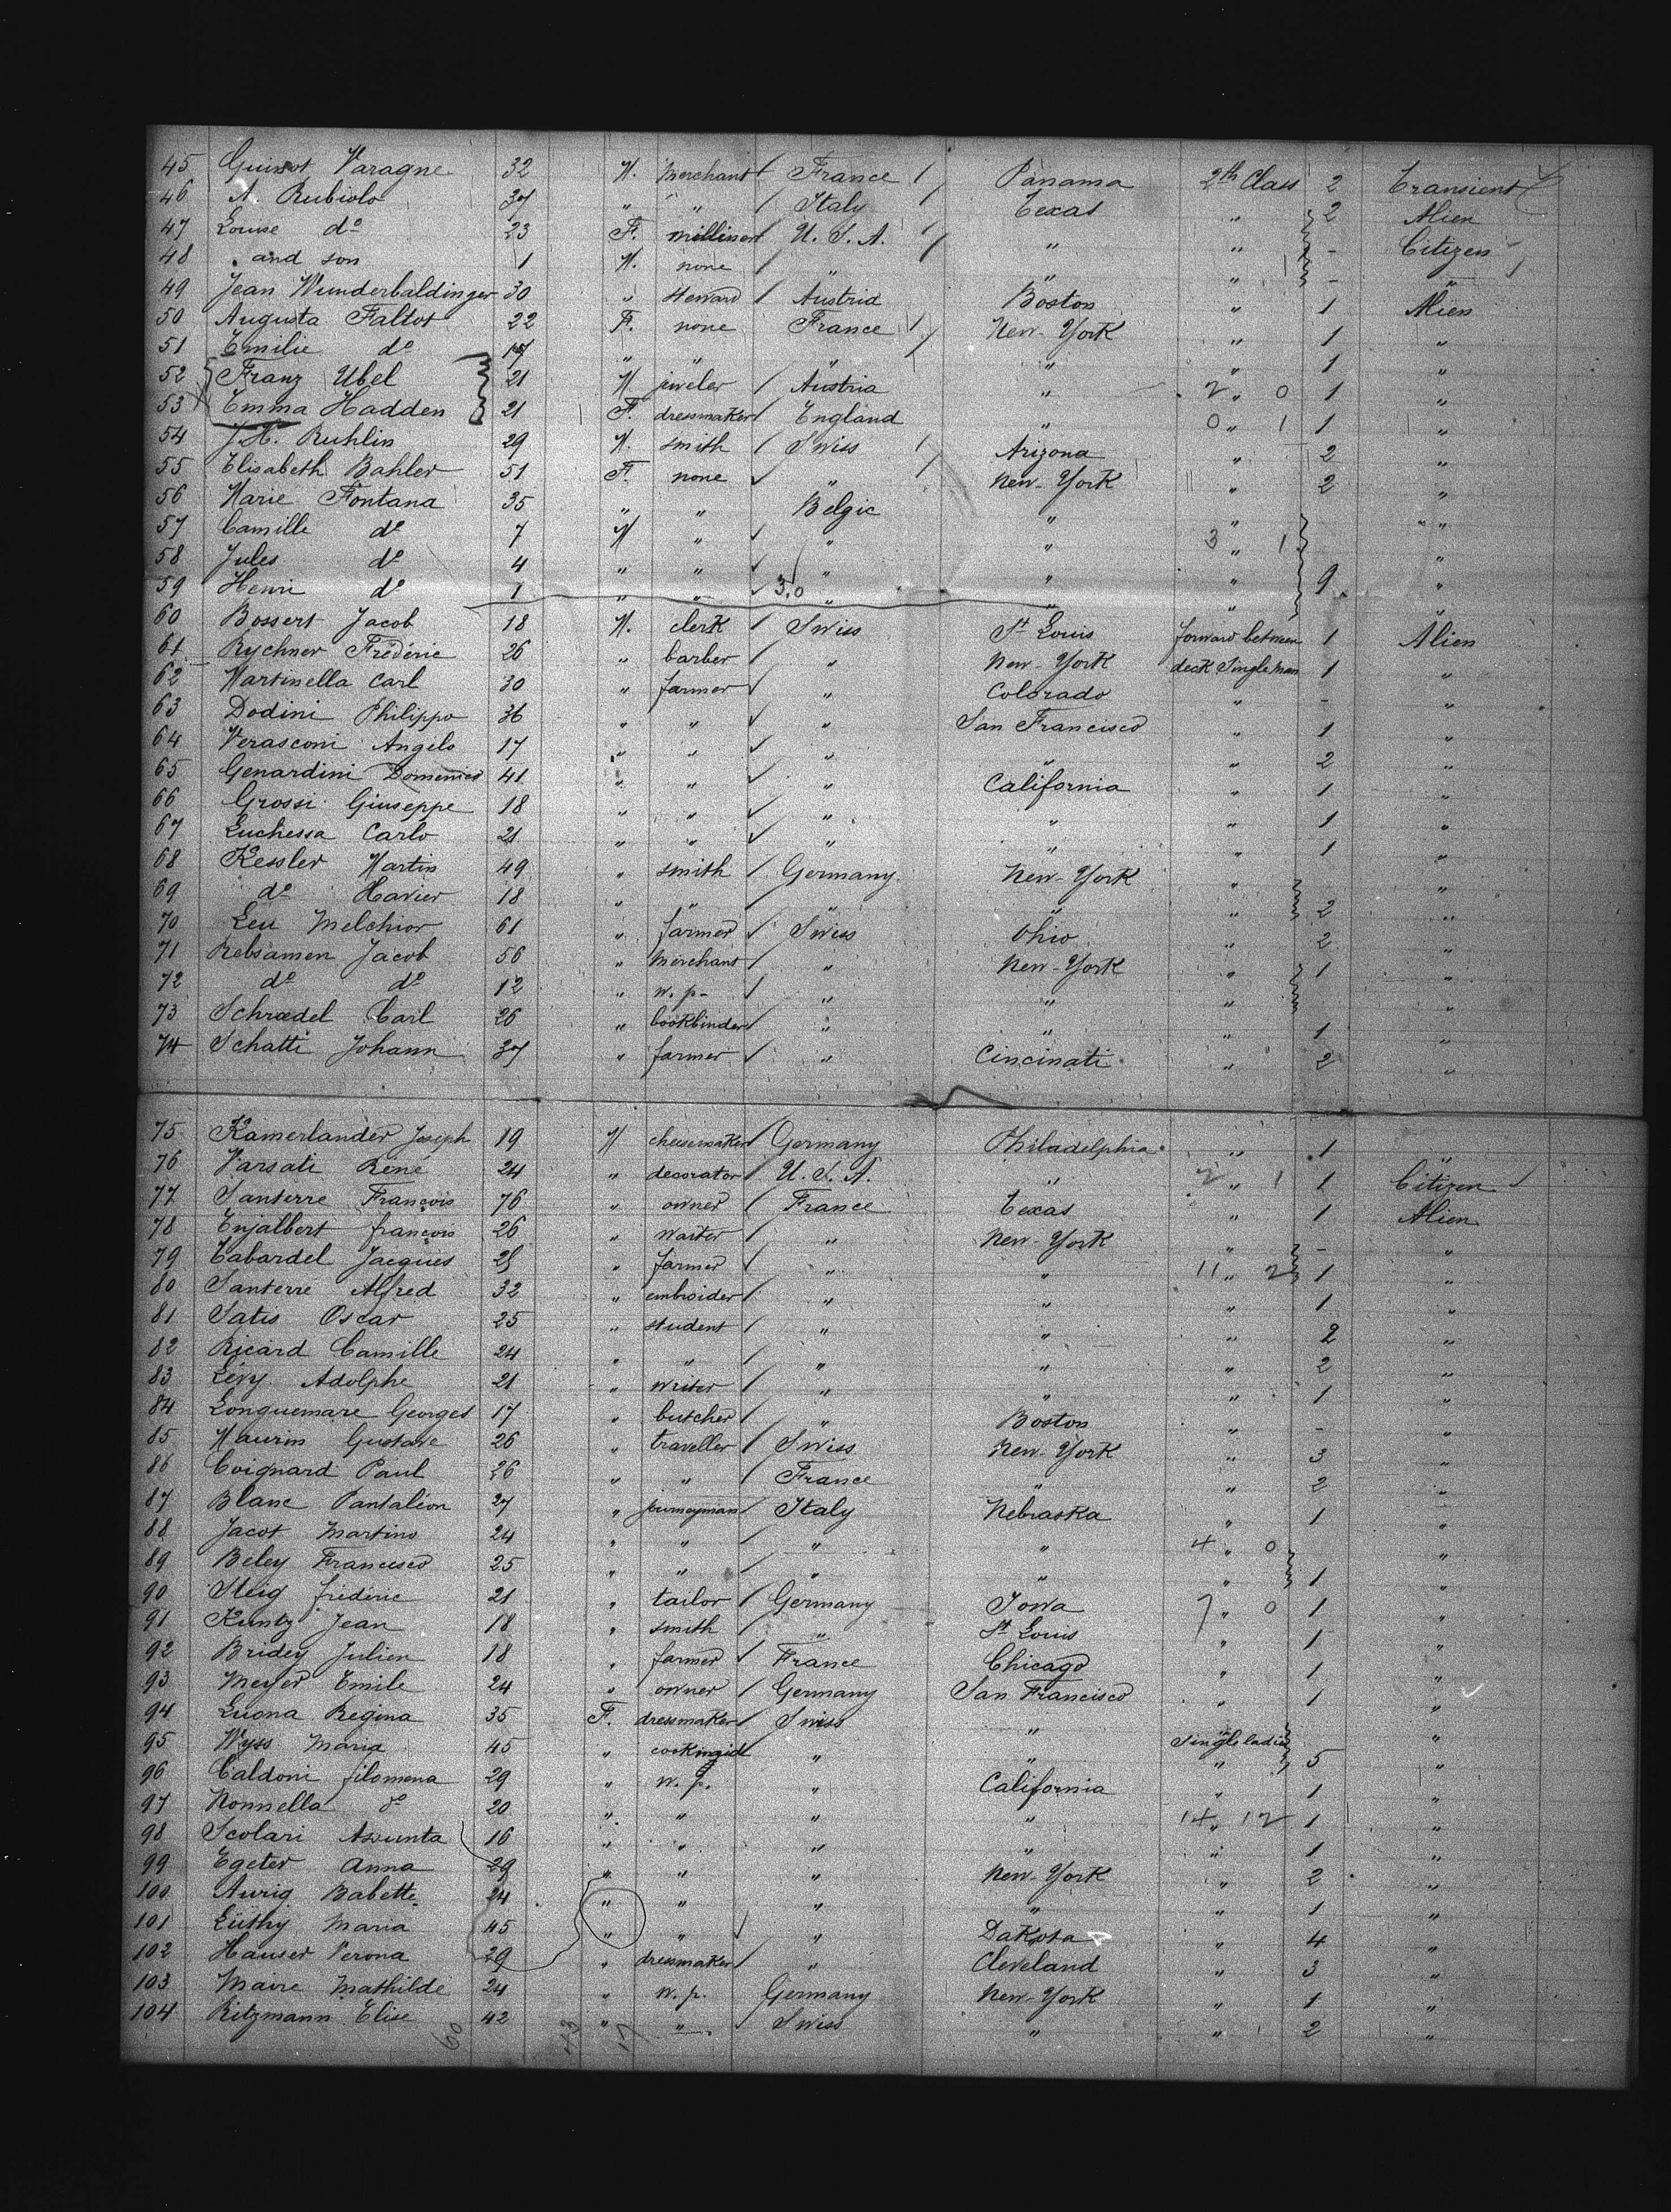 45 Guinot Varagne 32 M. Merchant France Panama 2th Class 2 Transient
46 A. Rubiolo 37 " " Italy Texas " 2 Alien
47 Louise do 23 F. milliner U.S.A. " " - Citizen
48 " and son 1 M. none " " " - "
49 Jean Wunderbaldinger 30 " Steward Austria Boston " 1 Alien
50 Augusta Faltot 22 F. none France New-York " 1 "
51 Emilie do 17 " " " " " 1 "
52 Franz Ubel 21 M. jiweler Austria " 2 " 0 1 "
53 Emma Hadden 21 F. dressmaker England " 0 " 1 1 "
54 J.H. Ruhlin 29 M. smith Swiss Arizona " 2 "
55 Elisabeth Bahler 51 F. none " New-York " 2 "
56 Marie Fontana 35 " " Belgic " " "
57 Camille do 7 M " " " 3 " 1 "
58 Jules do 4 " " " " " 9 "
59 Henri do 1 " " 3.0 " " " "
60 Bossert Jacob 18 M. clerk Swiss St Louis forward between 1 Alien
61 Rychner Frédéric 26 " barber " New-York deck Single Men 1 "
62 Martinella Carl 30 " farmer " Colorado " - "
63 Dodini Philippo 36 " " " San Francisco " 1 "
64 Verasconi Angelo 17 " " " " " 2 "
65 Genardini Domenico 41 " " " California " 1 "
66 Grossi Giuseppe 18 " " " " " 1 "
67 Luchessa Carlo 21 " " " " " 1 "
68 Kessler Martin 49 " smith Germany New-York " "
69 do Havier 18 " " " " " 2 "
70 Leu Melchior 61 " farmer Swiss Ohio " 2 "
71 Rebsamen Jacob 56 " Merchant " New-York " 1 "
72 do do 12 " w.p. " " " "
73 Schrædel Carl 26 " bookbinder " " " 1 "
74 Schatti Johann 37 " farmer " Cincinati " 2 "
75 Kamerlander Joseph 19 M cheesemaker Germany Philadelphia " 1 "
76 Varsati René 24 " decorator U.S.A. " 2 " 1 1 Citizen
77 Santerre François 76 " owner France Texas " 1 Alien
78 Enjalbert françois 26 " waiter " New-York " - "
79 Tabardel Jacques 25 " farmer " " 11 " 2 1 "
80 Santerre Alfred 32 " embroider " " " 1 "
81 Satis Oscar 25 " student " " " 2 "
82 Ricard Camille 24 " " " " " 2 "
83 Lévy Adolphe 21 " writer " " " 1 "
84 Longuemare Georges 17 " butcher " Boston " - "
85 Maurin Gustave 26 " traveller Swiss New-York " 3 "
86 Coignard Paul 26 " " France " " 2 "
87 Blanc Pantaléon 27 " journeyman Italy Nebraska " 1 "
88 Jacot Martino 24 " " " " 4 " 0 "
89 Beley Francesco 25 " " " " " 1 "
90 Steig frédéric 21 " tailor Germany Iowa 7 " 0 1 "
91 Kuntz Jean 18 " smith " St Louis " 1 "
92 Bridey Julien 18 " farmer France Chicago " 1 "
93 Meyer Emile 24 " owner Germany San Francisco " 1 "
94 Luona Regina 35 F. dressmaker Swiss " " "
95 Wyss Maria 45 " " " Single ladies 5 "
96 Caldoni filomena 29 " w.p. " California " 1 "
97 Nonnella do 20 " " " " 14 " 12 1 "
98 Scolari Assunta 16 " " " " " 1 "
99 Egeter Anna 29 " " " New-York " 2 "
100 Aurig Babette 24 " " " " " 1 "
101 Lüthy Maria 45 " " " Dakota " 4 "
102 Hauser Verona 29 " dressmaker " Cleveland " 3 "
103 Maire Mathilde 24 " w.p. Germany New-York " 1 "
104 Ritzmann Elise 42 " " Swiss " " 2 "
60 43 17